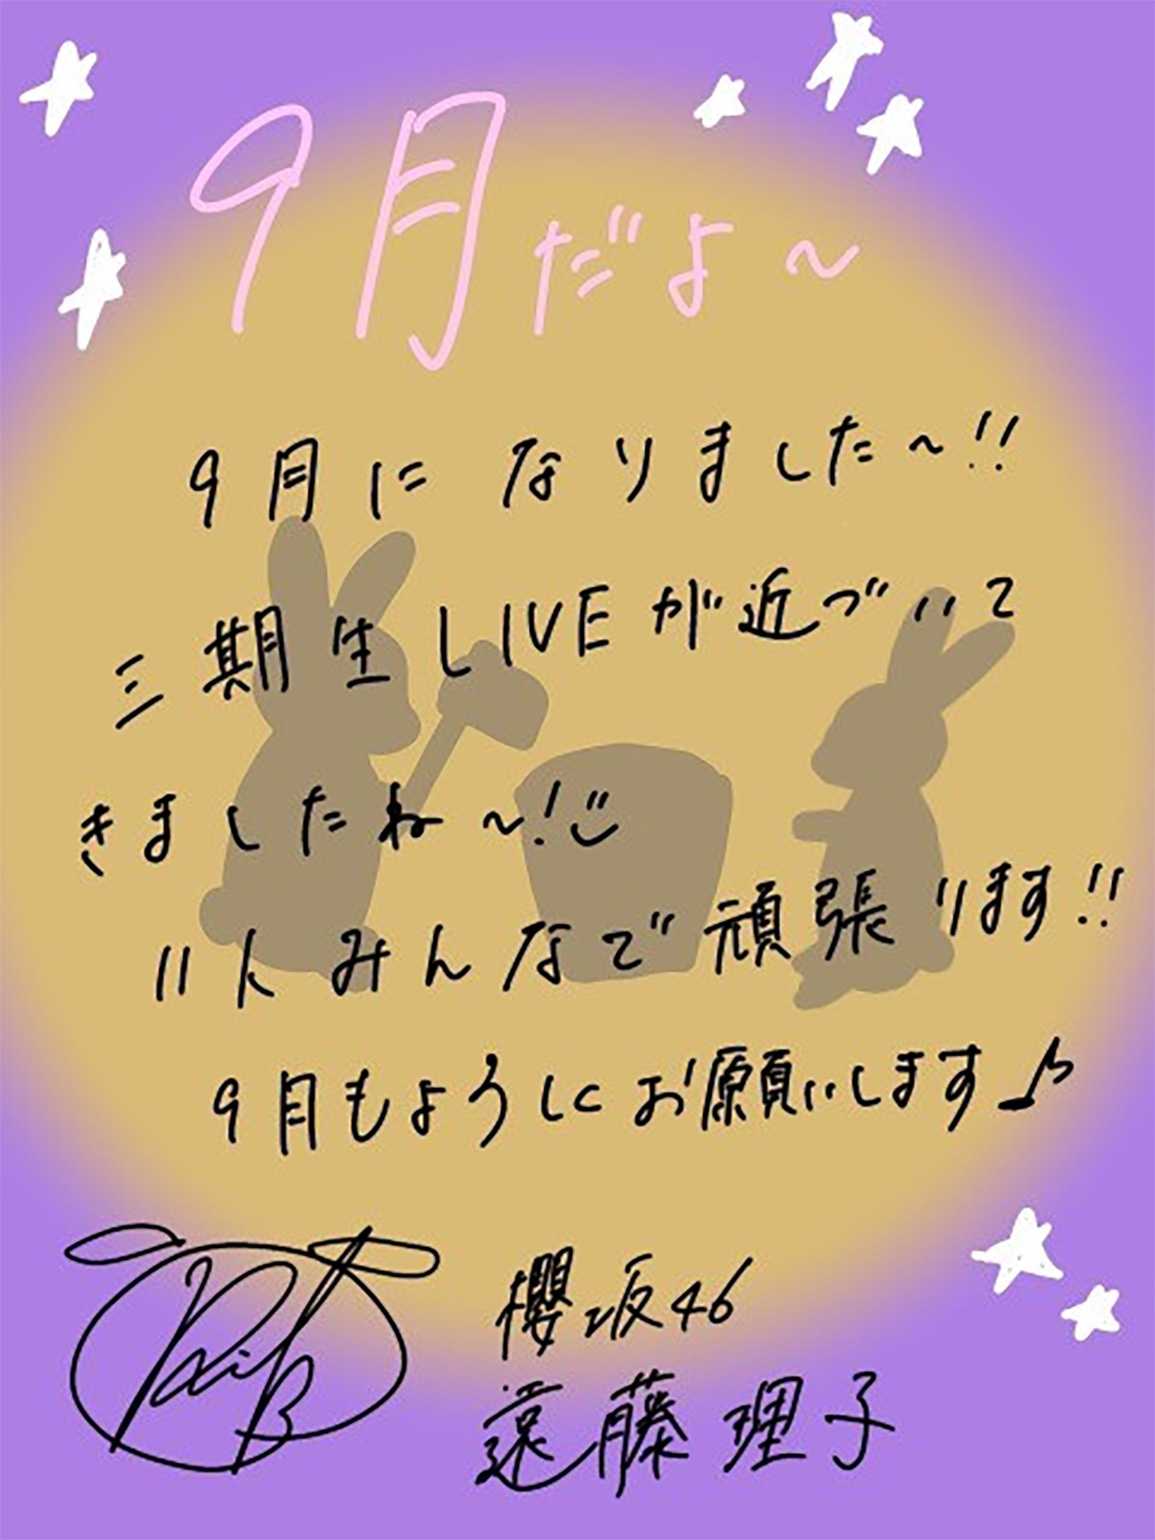 9月だよ〜
9月になりました〜!!
三期生LIVEが近づいて
きましたね〜!
11人みんなで頑張ります!!
9月もよろしくお願いします♪
櫻坂46
遠藤理子